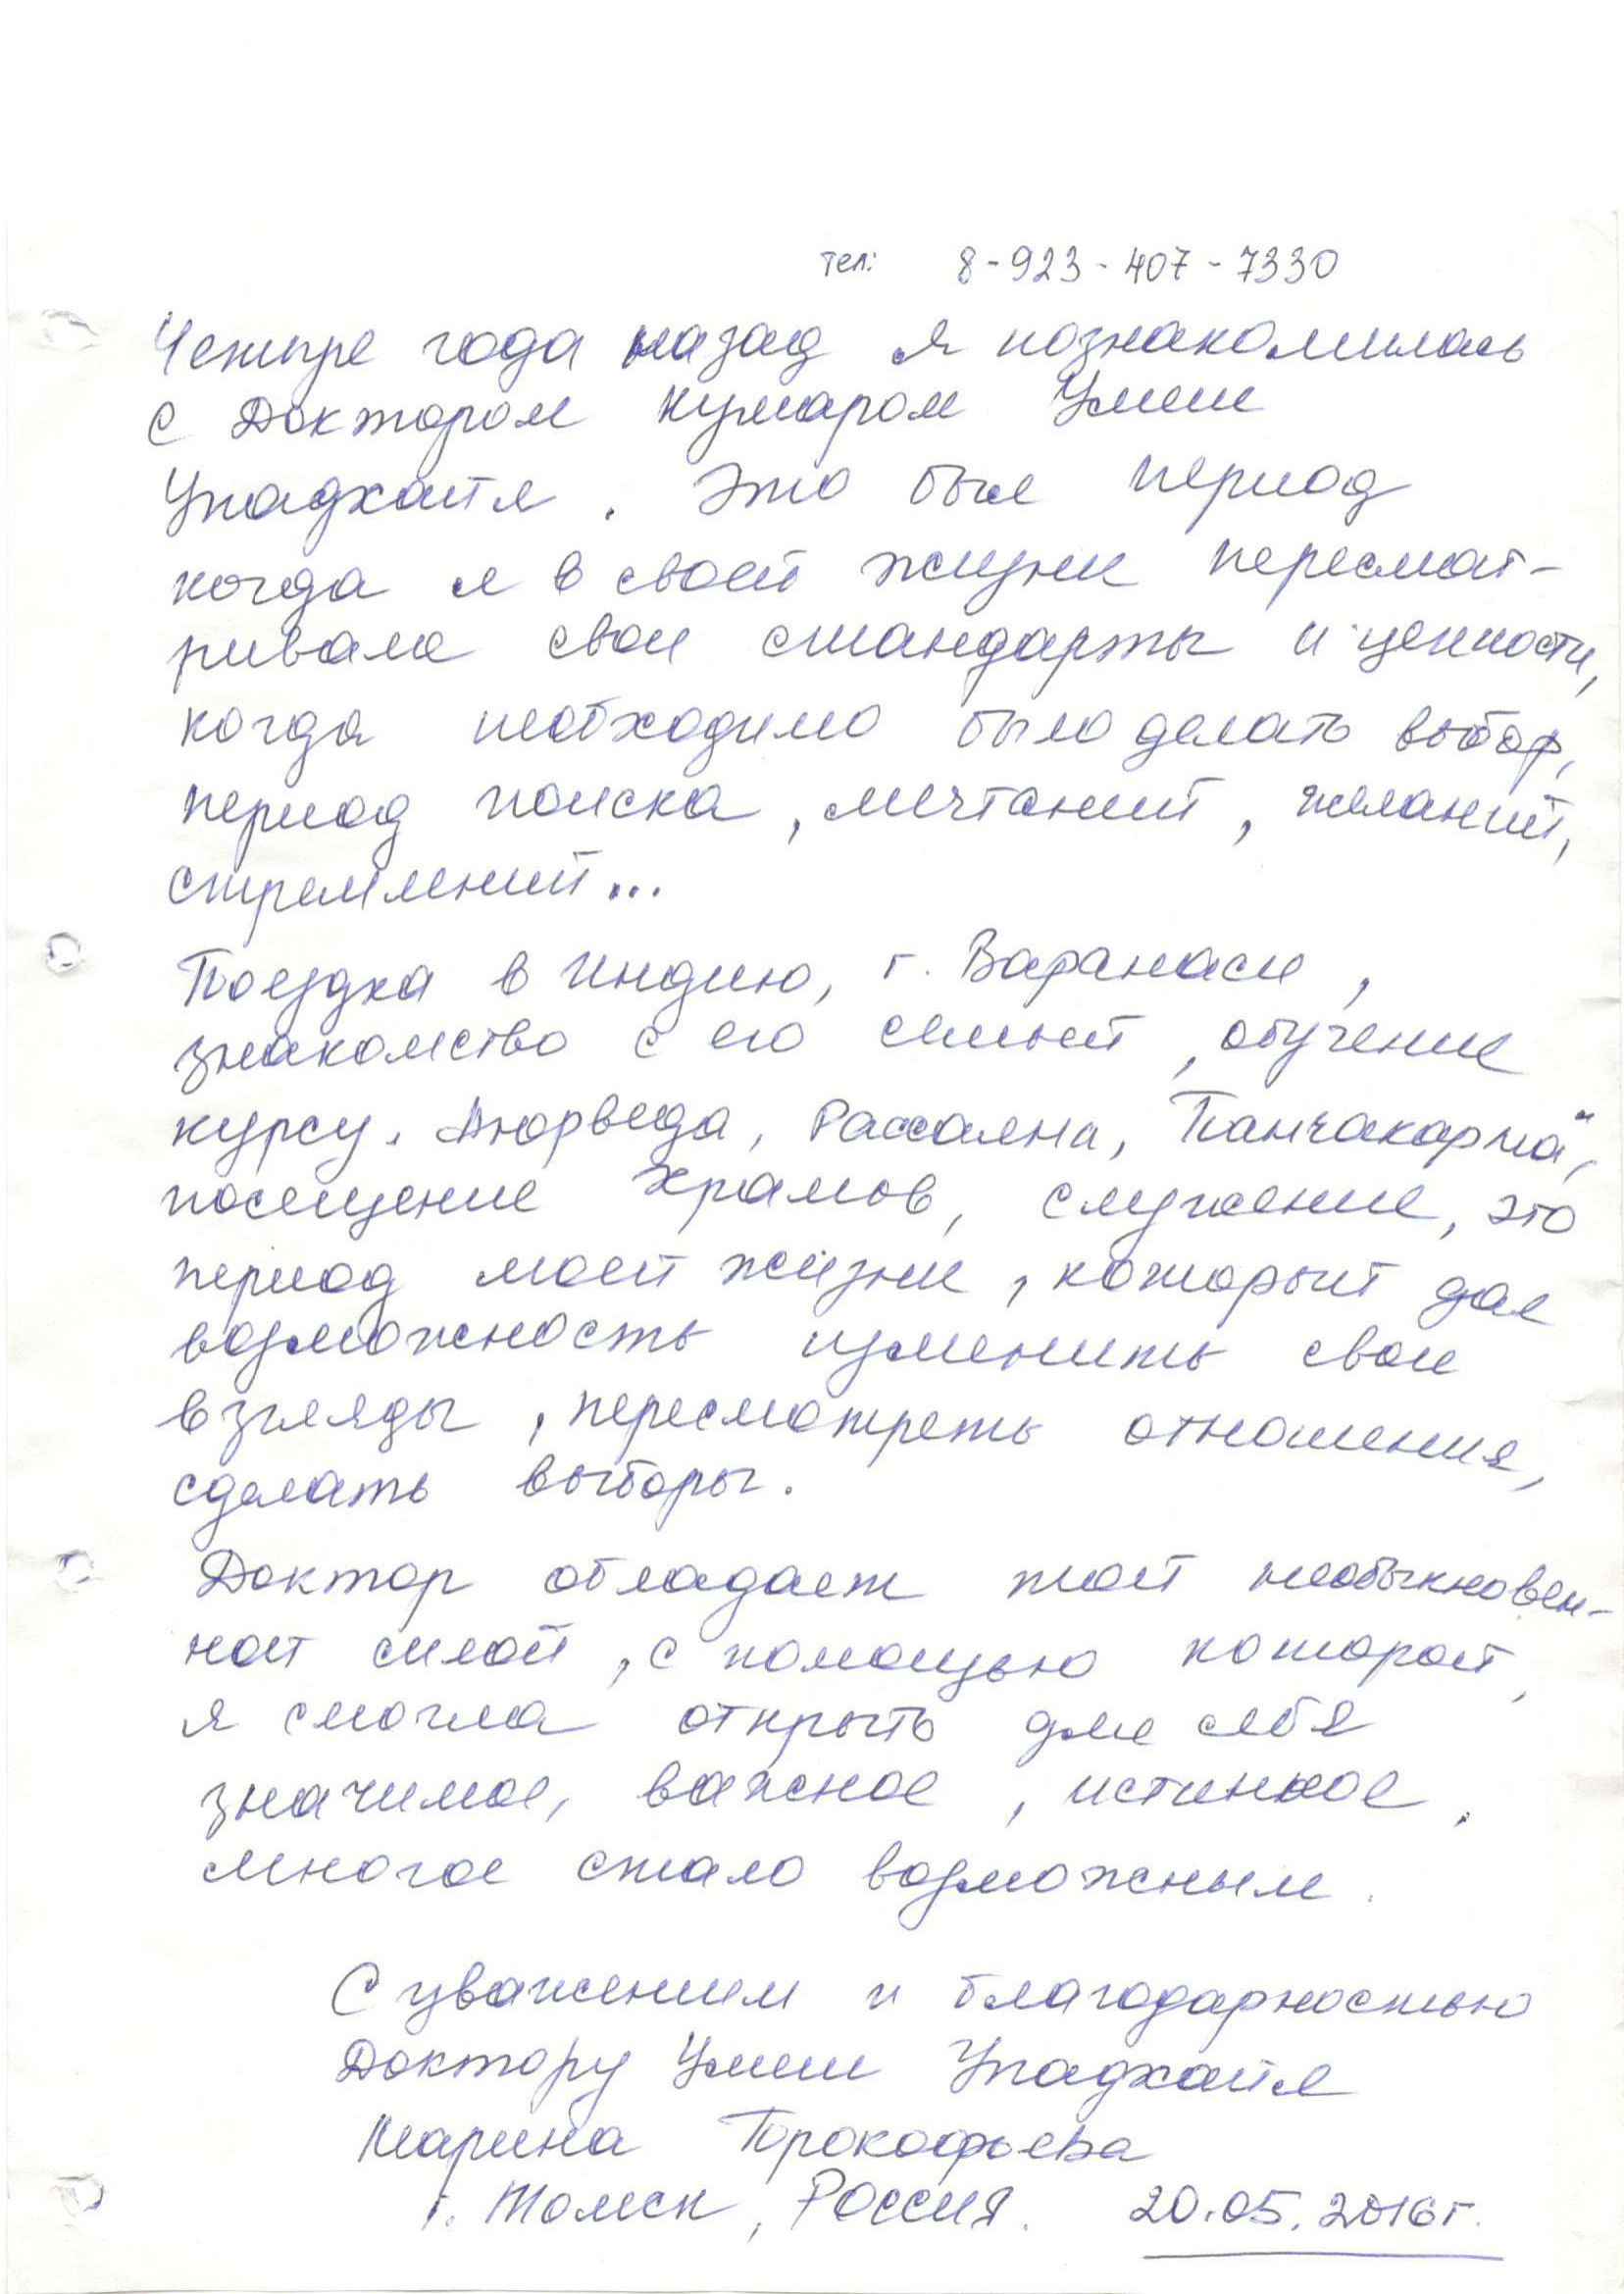 тел: 8-923-407-7330
Четыре года назад я познакомилась
с Доктором Кумаром Умеш
Упадхайя. Это был период
когда я в своей жизни пересмат-
ривала свои стандарты и ценности,
когда необходимо было делать выбор,
период поиска, мечтаний, желаний,
стремлений...
Поездка в Индию, г. Варанаси,
знакомство с его семьей, обучение
курсу „Аюрведа, Рассаяна, Панчакарма“,
посещение Храмов, служение, это
период моей жизни, который дал
возможность изменить свои
взгляды, пересмотреть отношения,
сделать выборы.
Доктор обладает той необыкновен-
ной силой, с помощью которой,
я смогла открыть для себя
значимое, важное, истинное,
многое стало возможным.
С уважением и благодарностью
Доктору Умеш Упадхайя
Марина Прокофьева
г. Томск, Россия. 20.05.2016г.